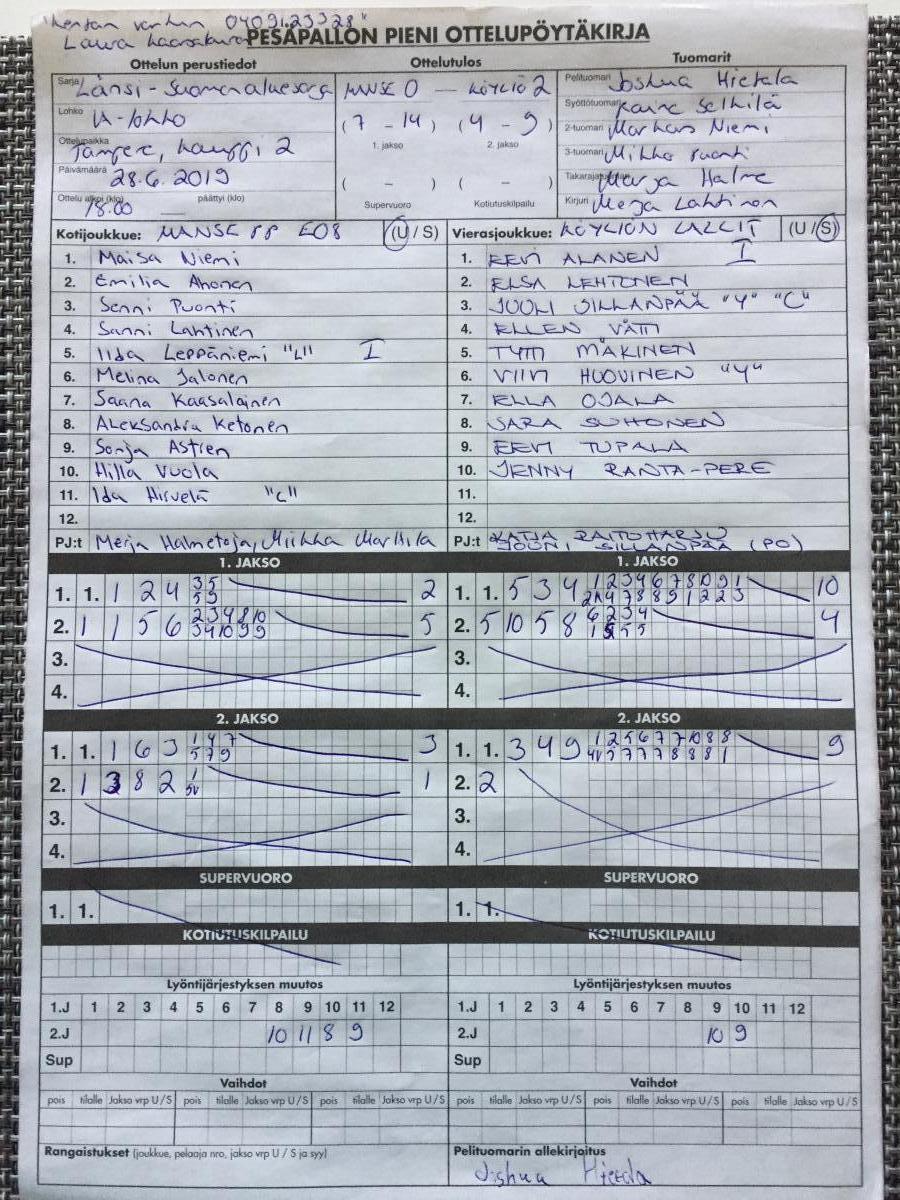 04091.23328"
Laura
PESÄPALLON PIENI OTTELUPÖYTÄKIRJA
Ottelun perustiedot Ottelutulos Tuomarit
Sarja Länsi-Suomen aluesarja MANSE 0 — KÖYLIÖ 2 Pelituomari Joshua Hietala
Lohko A-lohko (7 - 14) (4 - 9) Syöttötuomari
1. jakso 2. jakso 2-tuomari Markus Niemi
Ottelupaikka Tampere, Kauppi 2 3-tuomari Mikko Puonti
Päivämäärä 28.6.2019 ( - ) ( - ) Marja Halme
Ottelu alkoi (klo) 18.00 päättyi (klo) Supervuoro Kotiutuskilpailu Kirjuri Merja Lahtinen
Kotijoukkue: MANSE PP E08 (U / S) Vierasjoukkue: KÖYLIÖN LALLIT (U / S)
1. Maisa Niemi 1. EEVI ALANEN I
2. Emilia Ahonen 2. ELSA LEHTONEN
3. Senni Puonti 3. JOOLI SILLANPÄÄ "Y" "C"
4. Sanni Lahtinen 4. ELLEN VÄTTI
5. Iida Leppäniemi "L" I 5. TYTTI MÄKINEN
6. Melina Jalonen 6. VIIVI HUOVINEN "Y"
7. Saana Kaasalainen 7. ELLA OJALA
8. Aleksandra Ketonen 8. SARA SUHONEN
9. Sonja Astren 9. EEVI TUPALA
10. Hilla Vuola 10. JENNY RANTA-PERE
11. Ida Hirvelä "C" 11.
12. 12.
PJ:t Merja Halmetoja, Miikka Marttila PJ:t KATJA RAITOHARJU
JOUNI SILLANPÄÄ (PO)
1. JAKSO 1. JAKSO
1. 1. 1 2 4 3 5 2 1. 1. 5 3 4 1 2 3 4 6 7 8 10 9 1 10
5 9 2 4 7 8 8 9 1 2 2 3
2. 1 1 5 6 2 3 4 8 10 5 2. 5 10 5 8 6 2 3 4 4
3 4 10 9 9 1 5 5 5
3. 3.
4. 4.
2. JAKSO 2. JAKSO
1. 1. 1 6 3 1 4 7 3 1. 1. 3 4 9 1 2 5 6 7 7 10 8 8 9
5 7 9 4V 5 7 7 7 8 8 8 1
2. 1 3 8 2 1 1 2. 2
5V
3. 3.
4. 4.
SUPERVUORO SUPERVUORO
1. 1. 1. 1.
KOTIUTUSKILPAILU KOTIUTUSKILPAILU
Lyöntijärjestyksen muutos Lyöntijärjestyksen muutos
1.J 1 2 3 4 5 6 7 8 9 10 11 12 1.J 1 2 3 4 5 6 7 8 9 10 11 12
2.J 10 11 8 9 2.J 10 9
Sup Sup
Vaihdot Vaihdot
pois tilalle Jakso vrp U / S pois tilalle Jakso vrp U / S pois tilalle Jakso vrp U / S pois tilalle Jakso vrp U / S pois tilalle Jakso vrp U / S pois tilalle Jakso vrp U / S
Rangaistukset (joukkue, pelaaja nro, jakso vrp U / S ja syy) Pelituomarin allekirjoitus
Joshua Hietala